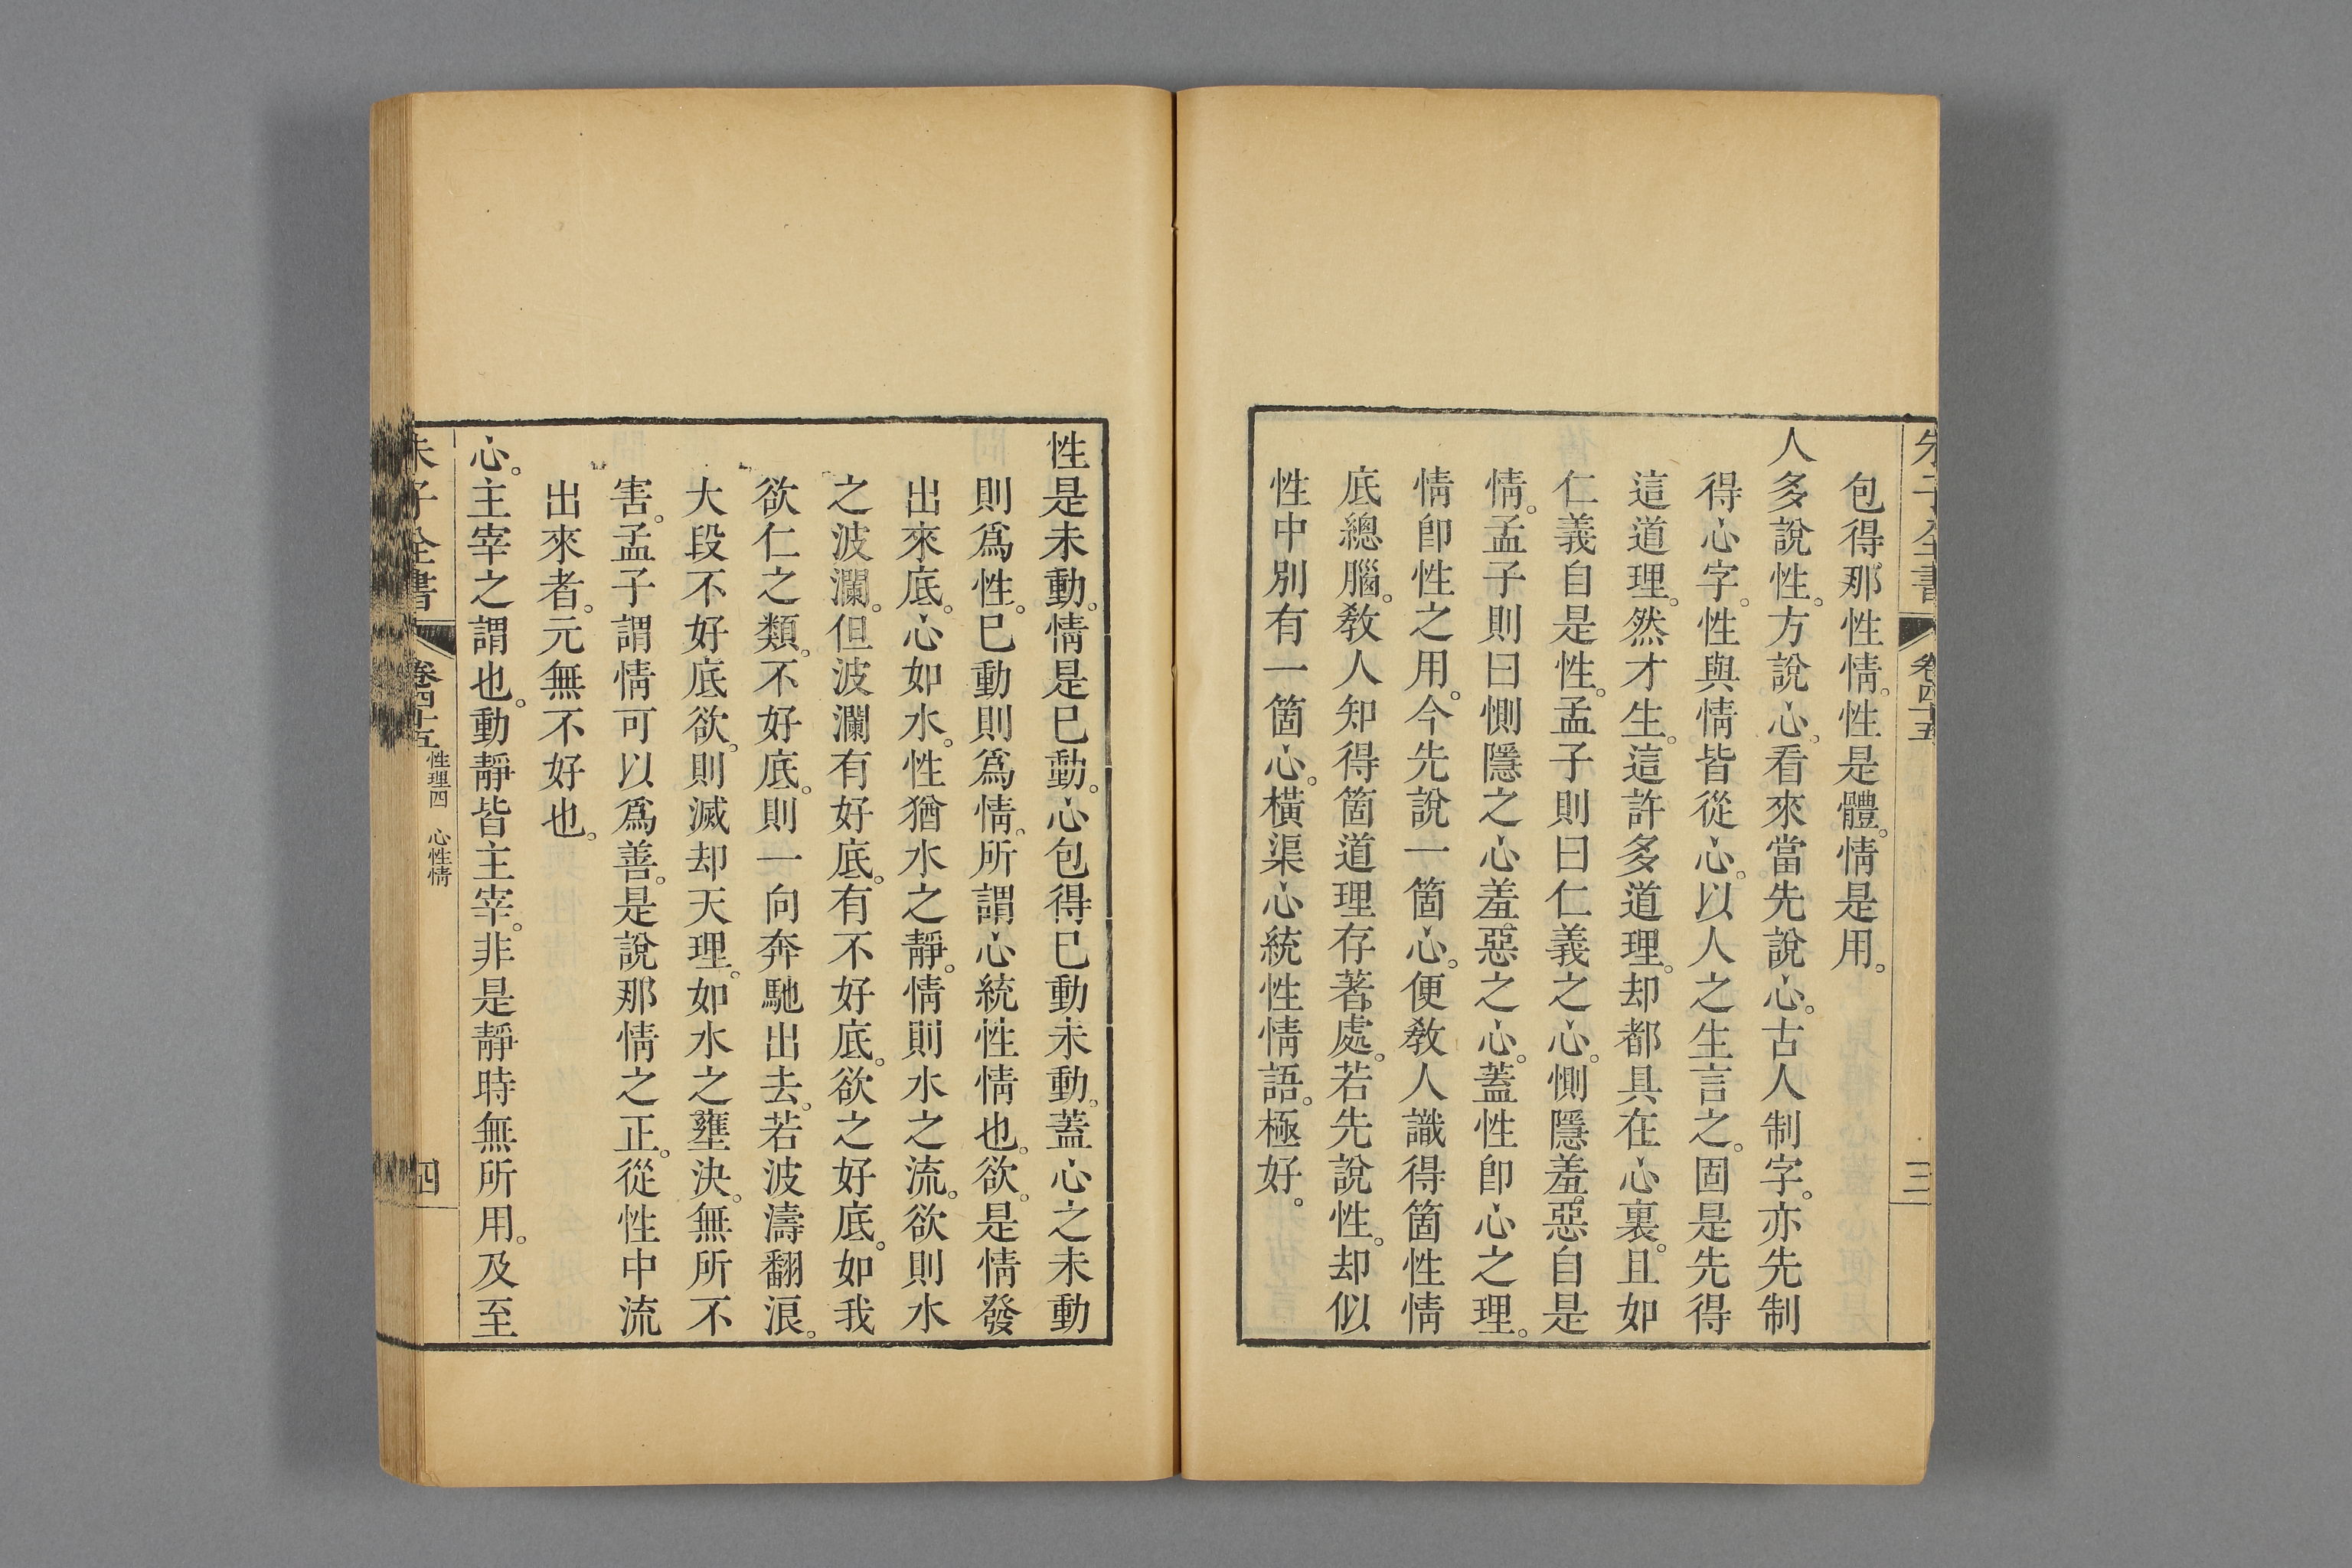 朱子全書 卷四十五 三
包得那性情。性是體。情是用。
人多說性。方說心。看來當先說心。古人制字。亦先制
得心字。性與情皆從心。以人之生言之。固是先得
這道理。然才生。這許多道理。却都具在心裏。且如
仁義自是性。孟子則曰仁義之心。惻隱羞惡自是
情。孟子則曰惻隱之心羞惡之心。蓋性卽心之理。
情卽性之用。今先說一箇心。便敎人識得箇性情
底總腦。敎人知得箇道理存著處。若先說性。却似
性中別有一箇心。橫渠心統性情語。極好。
性是未動。情是已動。心包得已動未動。蓋心之未動
則爲性。已動則爲情。所謂心統性情也。欲。是情發
出來底。心如水。性猶水之靜。情則水之流。欲則水
之波瀾。但波瀾有好底。有不好底。欲之好底。如我
欲仁之類。不好底。則一向奔馳出去。若波濤翻浪。
大段不好底欲。則滅却天理。如水之壅決。無所不
害。孟子謂情可以爲善。是說那情之正。從性中流
出來者。元無不好也。
心。主宰之謂也。動靜皆主宰。非是靜時無所用。及至
朱子全書 卷四十五 性理四 心性情 四